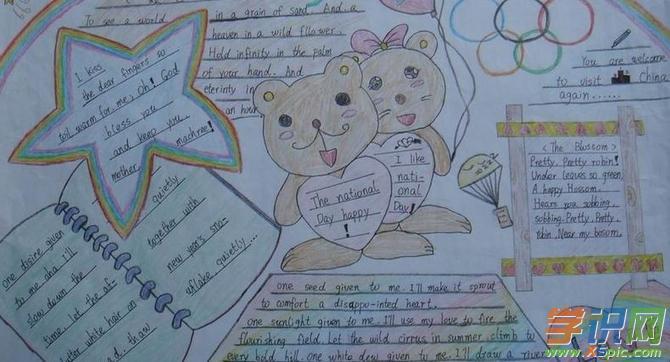 To see a world in a grain of sand. And a
heaven in a wild flower.
Hold infinity in the palm
of your hand. And
eterinty in
an hour
I kiss
the dear fingers so
toil warm for me, Oh! God
bless you
and keep you
mother machree!
one disire given
to me aha I'll
slow down the
time. let the af-
white hair on
quietly
together with
new year's sno-
wflake quietly...
The national
Day happy
!
I like
nati-
onal
Day!
You are welcome
to visit China
again......
<The Blossom>
Pretty. Pretty robin!
Under leaves so green
A happy Blossom.
Hears you sobbing.
sobbing. Pretty. Pretty.
robin. Near my bosom.
one seed given to me. I'll make it sprout
to comfort a disappo-inted heart.
one sunlight given to me. I'll use my love to fire the
flourishing field. Let the wild cirrus in summer climb to
every bold hill. one white dew given to me. I'll draw a river
学识网
www.xSpic.com